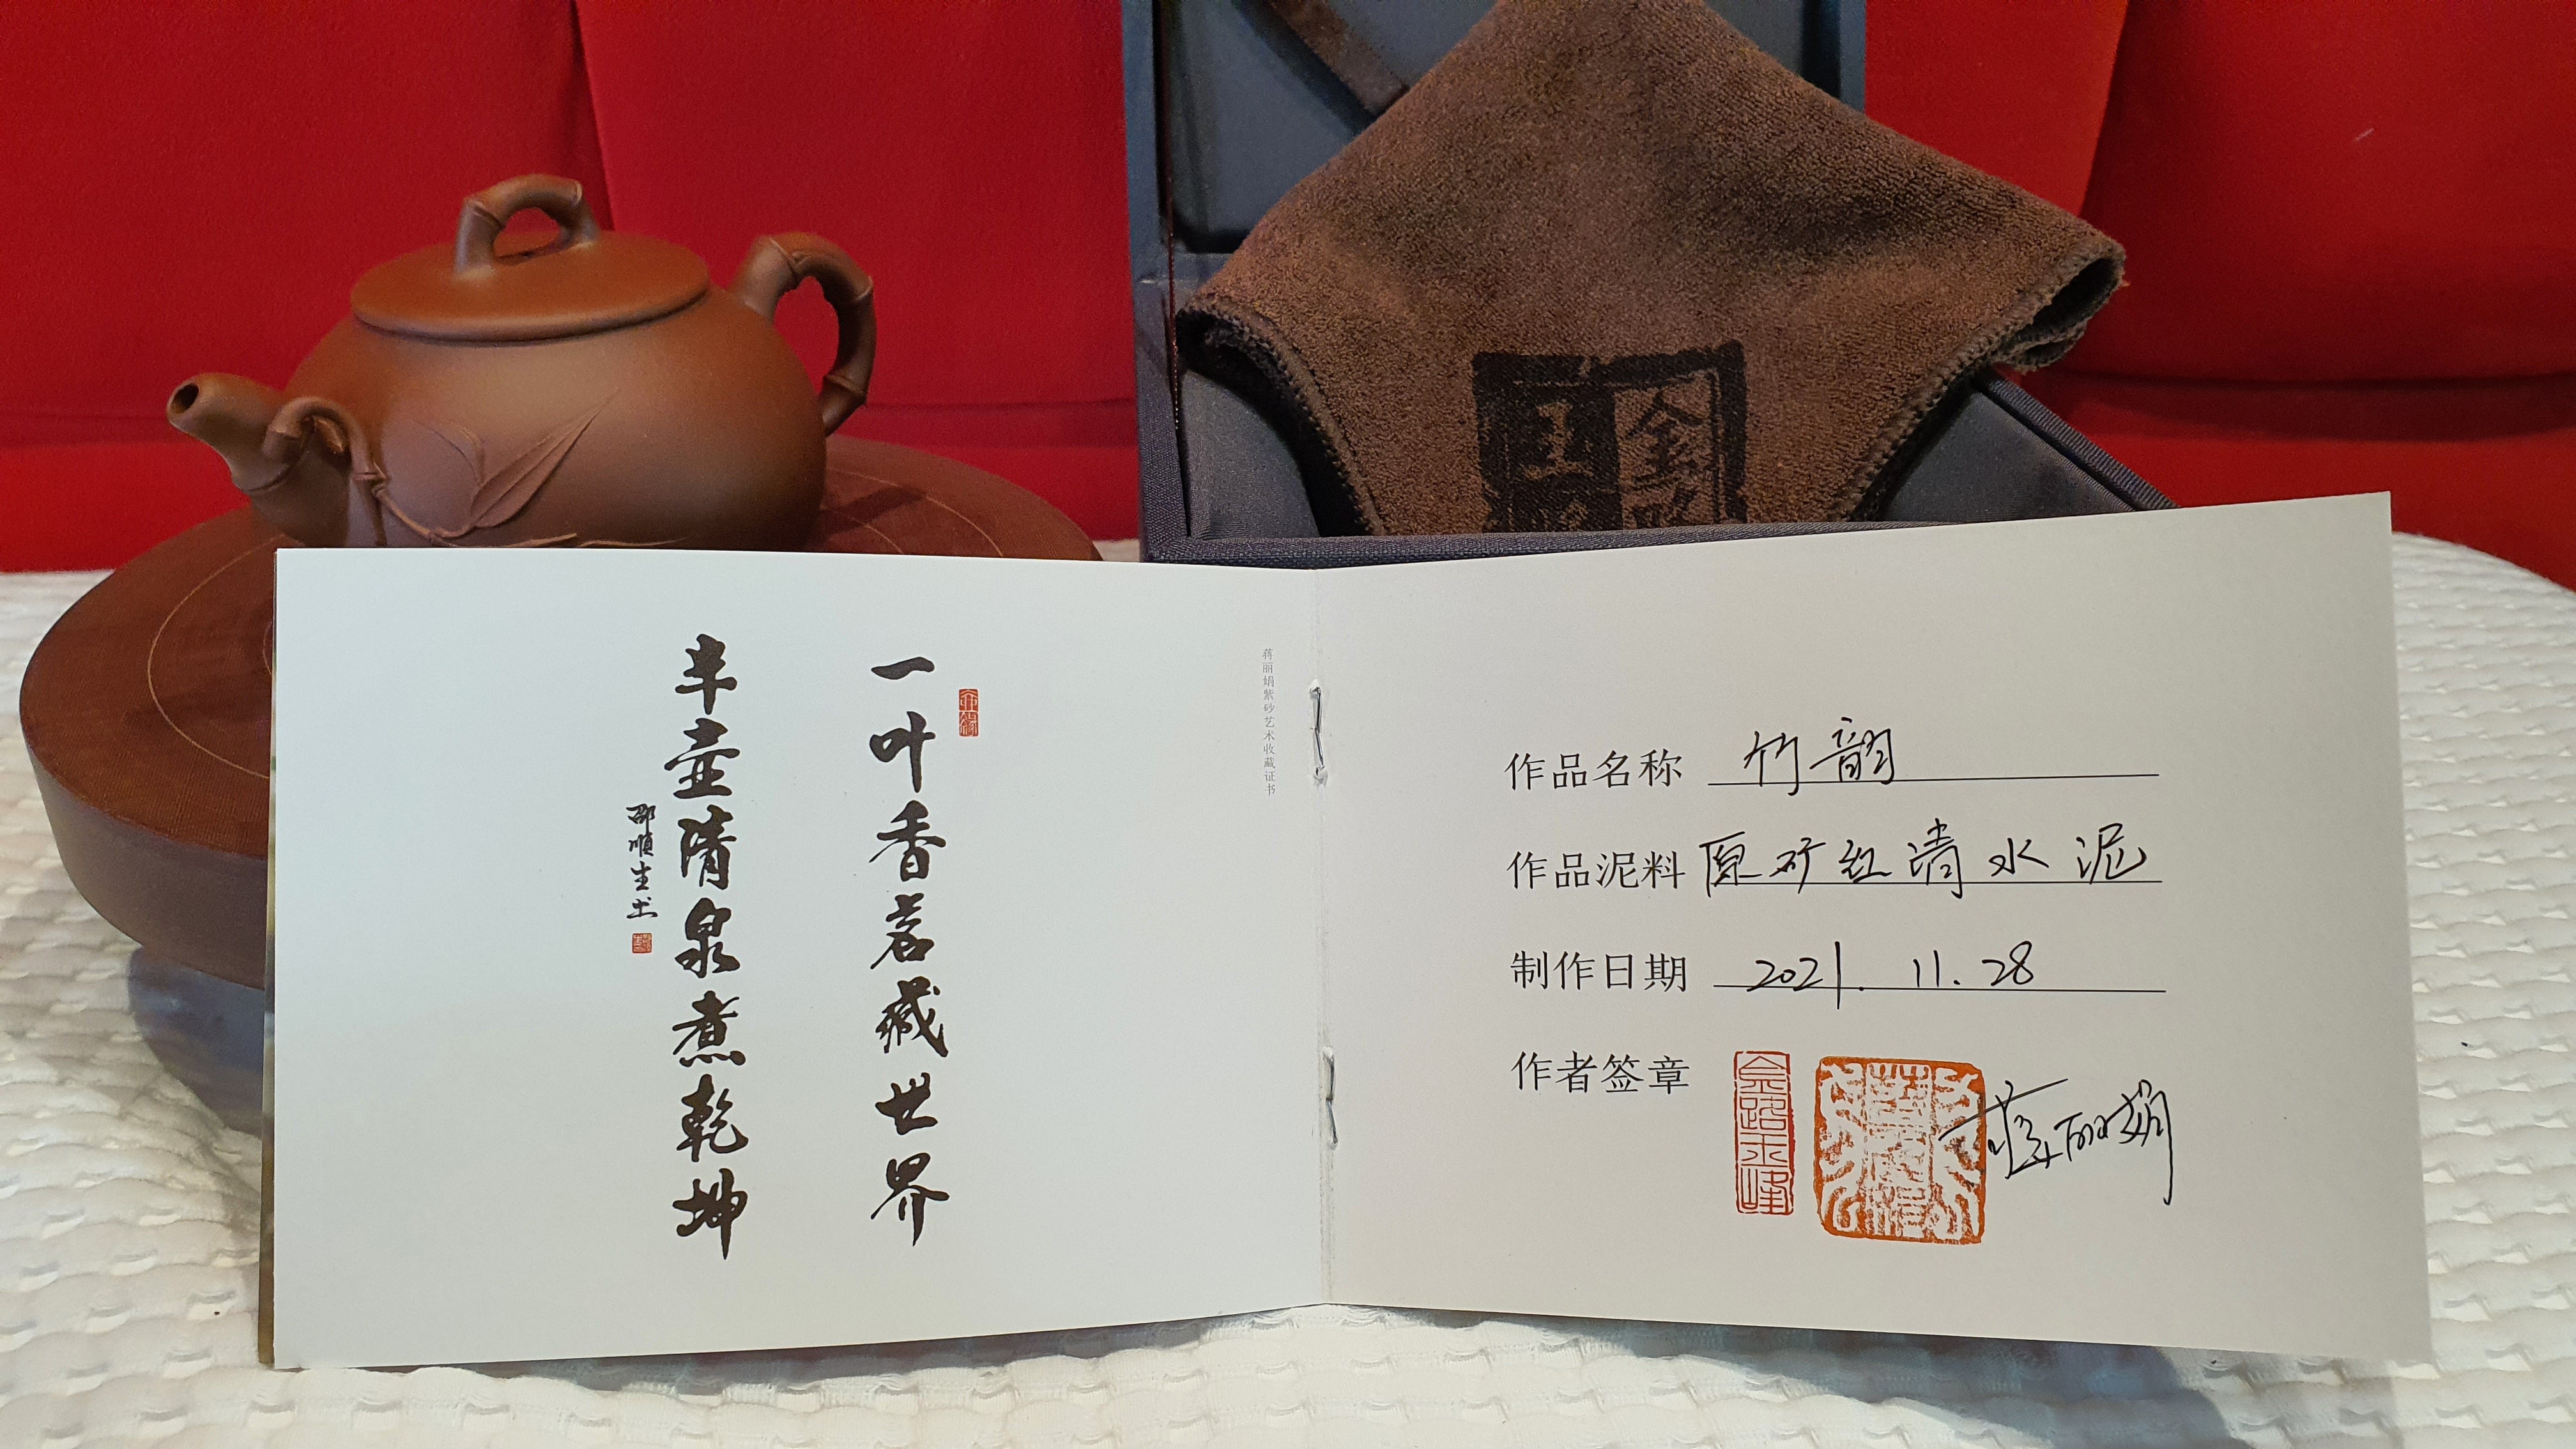 一叶香茗藏世界
半壶清泉煮乾坤
邵順生书
蒋丽娟紫砂艺术收藏证书
作品名称 竹韵
作品泥料 原矿红清水泥
制作日期 2021.11.28
作者签章 金路玉峰 蒋丽娟
金
玉